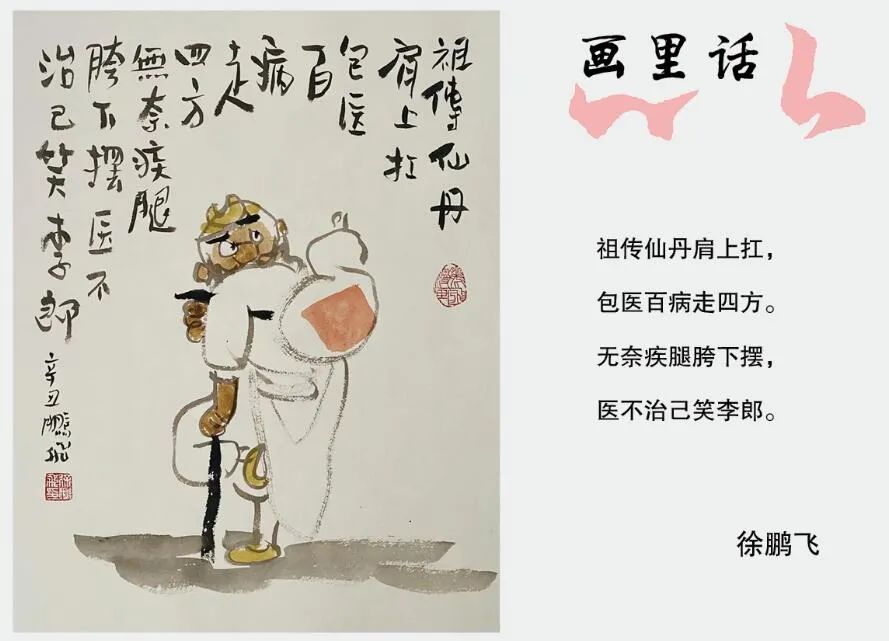 祖傳仙丹
肩上扛
包医
百
病
走
四方
無奈疾腿
胯下摆医不
治己笑李郎
辛丑鵬飛
画里话
祖传仙丹肩上扛，
包医百病走四方。
无奈疾腿胯下摆，
医不治己笑李郎。
徐鹏飞